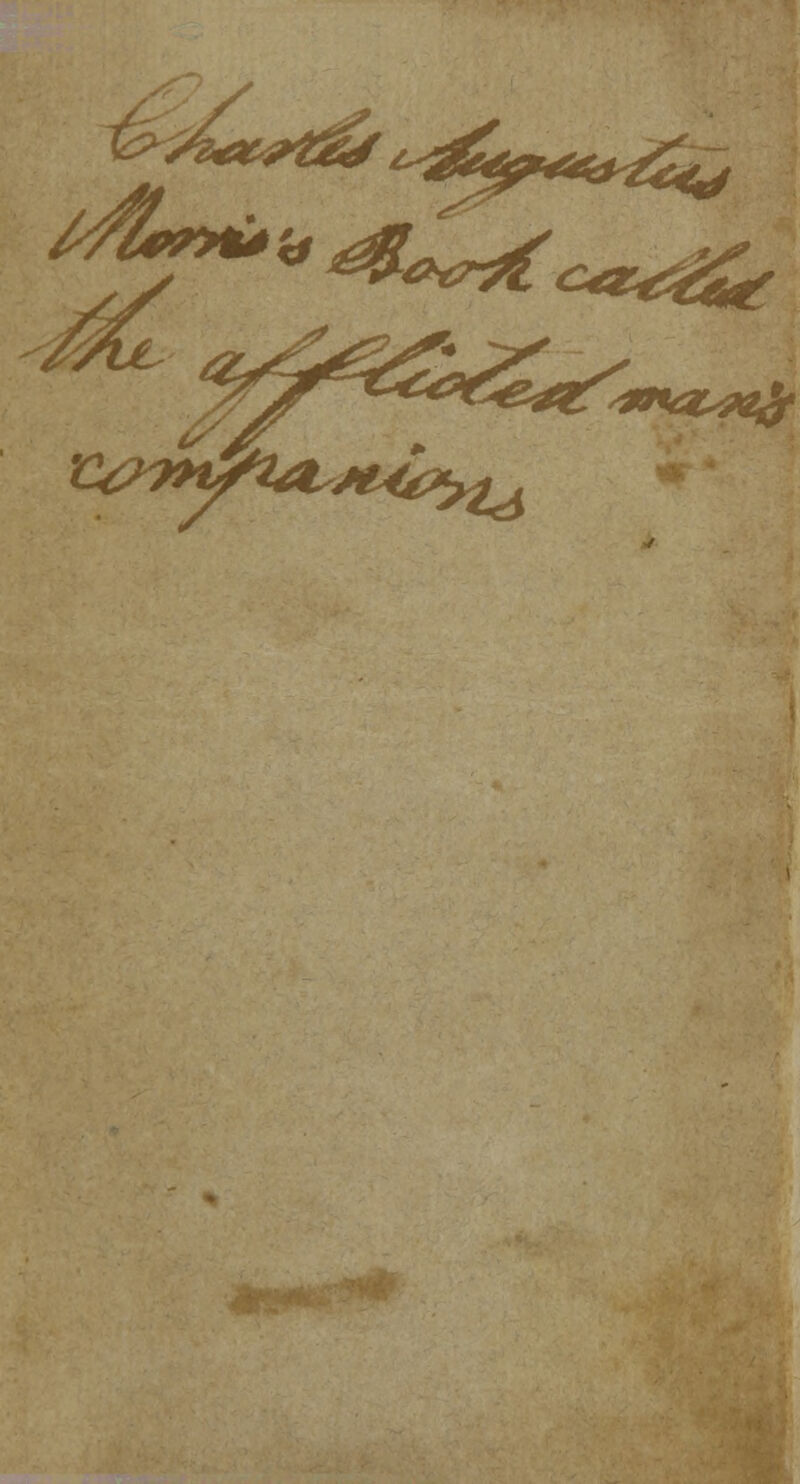 Charles Augustus
Morris's Book called
the afflicted man's
companions